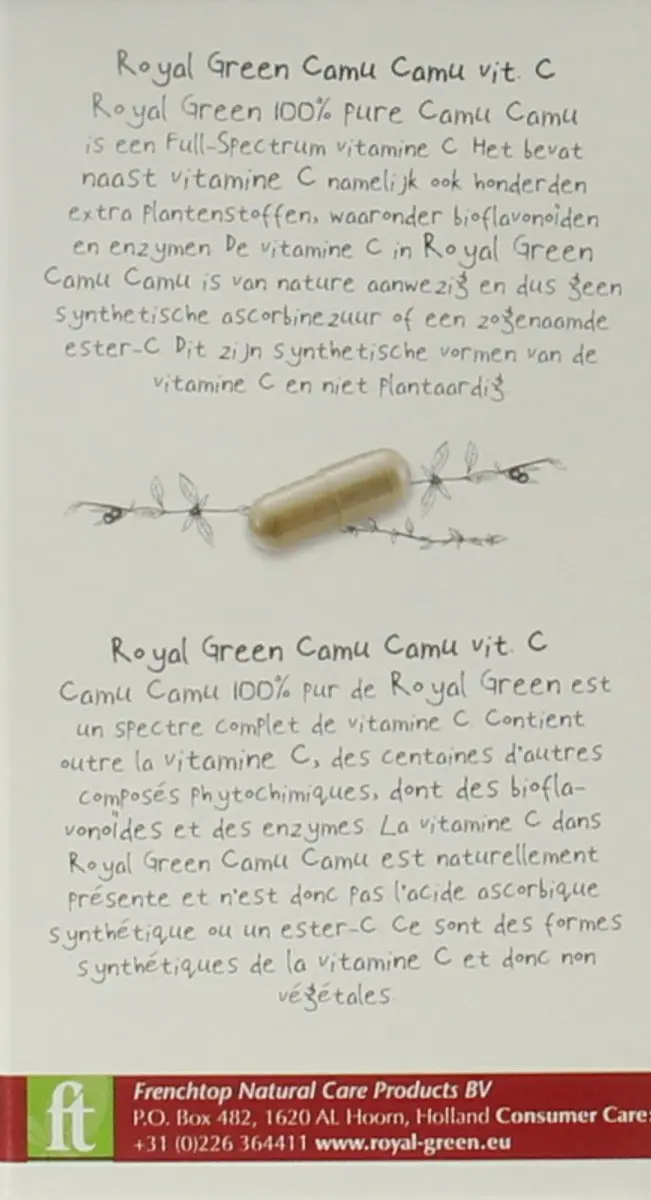 Royal Green Camu Camu vit. C
Royal Green 100% pure Camu Camu
is een Full-Spectrum vitamine C Het bevat
naast vitamine C namelijk ook honderden
extra plantenstoffen, waaronder bioflavonoïden
en enzymen De vitamine C in Royal Green
Camu Camu is van nature aanwezig en dus geen
synthetische ascorbinezuur of een zogenaamde
ester-C Dit zijn synthetische vormen van de
vitamine C en niet plantaardig
Royal Green Camu Camu vit. C
Camu Camu 100% pur de Royal Green est
un spectre complet de vitamine C Contient
outre la vitamine C, des centaines d'autres
composés phytochimiques, dont des biofla-
vonoïdes et des enzymes La vitamine C dans
Royal Green Camu Camu est naturellement
présente et n'est donc pas l'acide ascorbique
synthétique ou un ester-C Ce sont des formes
synthétiques de la vitamine C et donc non
végétales
ft
Frenchtop Natural Care Products BV
P.O. Box 482, 1620 AL Hoorn, Holland Consumer Care:
+31 (0)226 364411 www.royal-green.eu